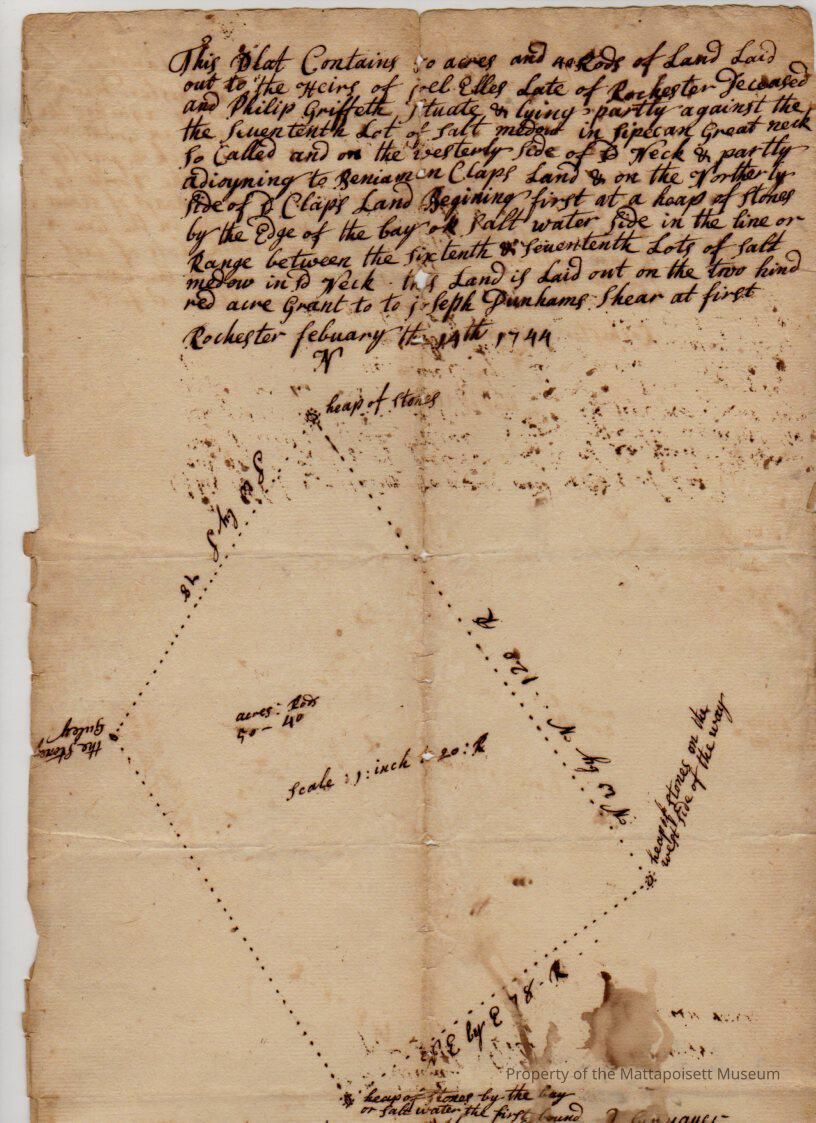 This Plat Contains 50 acres and 40 Rods of Land Laid
out to the Heirs of Joel Elles Late of Rochester Deceased
and Philip Griffeth situate & lying partly against the
the seuententh Lot of salt medow in Sipecan Great neck
so Called and on the westerly side of sd Neck & partly
adioyning to Beniamen Claps Land & on the Northerly
side of sd Claps Land Begining first at a heap of stones
by the Edge of the bay or salt water side in the line or
Range between the sixtenth & seuententh Lots of salt
medow in sd Neck this Land is Laid out on the two hind
red acre Grant to to Joseph Dunhams shear at first
Rochester febuary the 14th 1744
N
heap of stones
S W by S 78
R
128
N W by N
the stoney
Guley
acres: Rods
50 - 40
Scale : 1 : inch 20 : R
heap of stones on the
west side of the way
N E by E 78 - R
heap of stones by the bay
or salt water the first bound
Property of the Mattapoisett Museum